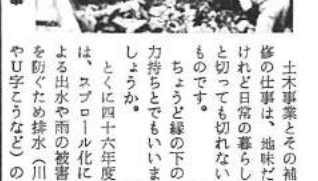 土木事業とその補
修の仕事は、地味だ
けれど日常の暮らし
と切っても切れない
ものです。
ちょうど縁の下の
力持ちとでもいいま
しょうか。
とくに四十六年度
は、スプロール化に
よる出水や雨の被害
を防ぐため排水（川
やU字こうなど）の